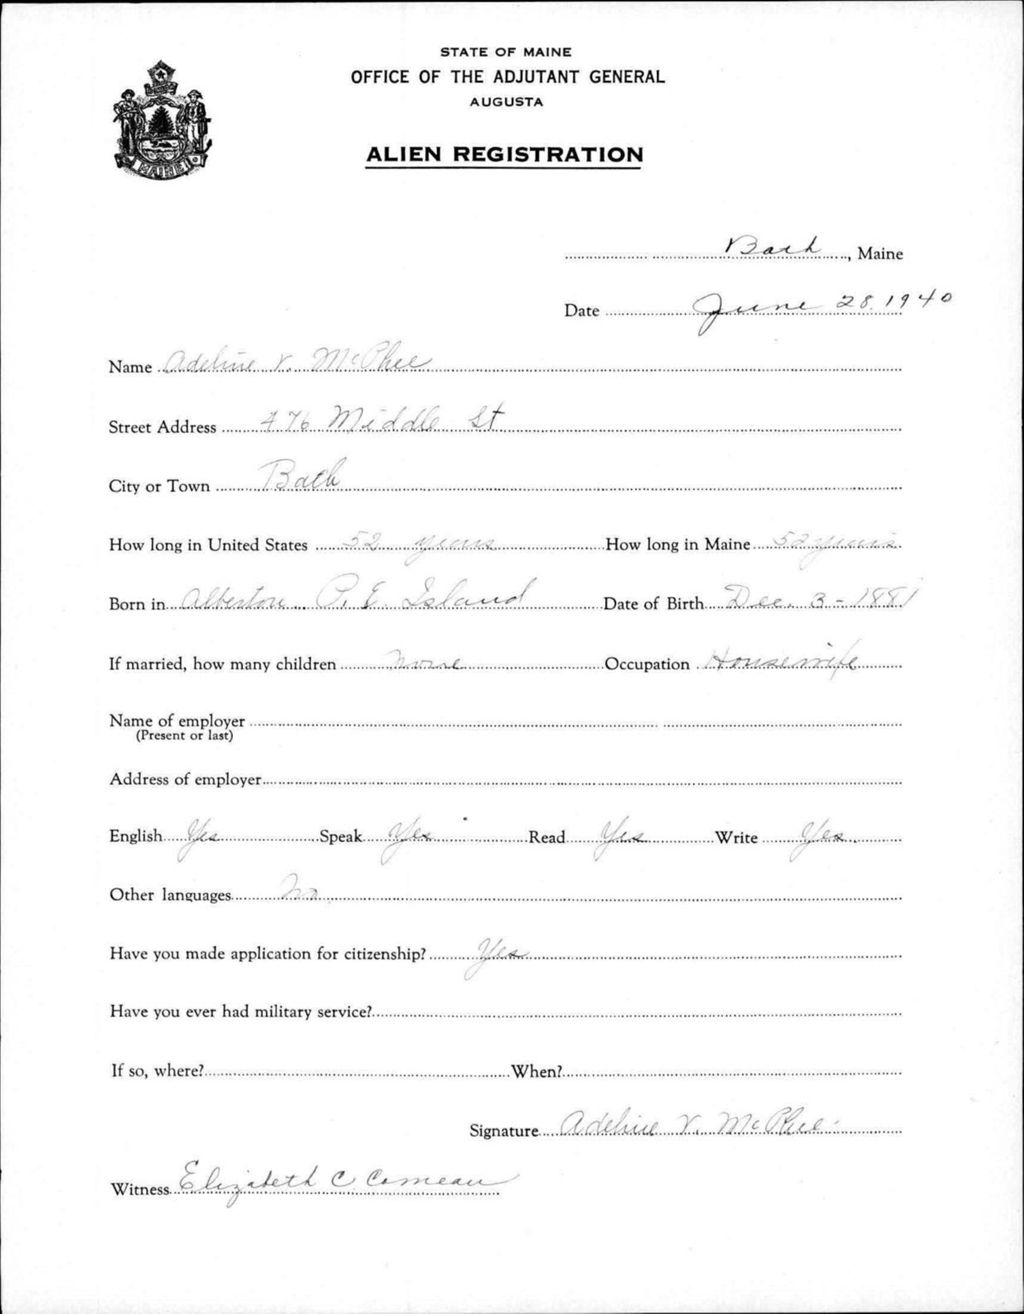 STATE OF MAINE
OFFICE OF THE ADJUTANT GENERAL
AUGUSTA
ALIEN REGISTRATION
MAINE
Bath, Maine
Date June 28. 1940
Name Adeline V. McPhee
Street Address 476 Middle St
City or Town Bath
How long in United States 52 years How long in Maine 52 years
Born in Alberton P. E. Island Date of Birth Dec. 3 - 1881
If married, how many children none Occupation Housewife
Name of employer
(Present or last)
Address of employer
English Yes Speak Yes Read Yes Write Yes
Other languages No
Have you made application for citizenship? Yes
Have you ever had military service?
If so, where? When?
Signature Adeline V. McPhee
Witness Elizabeth C Comeau